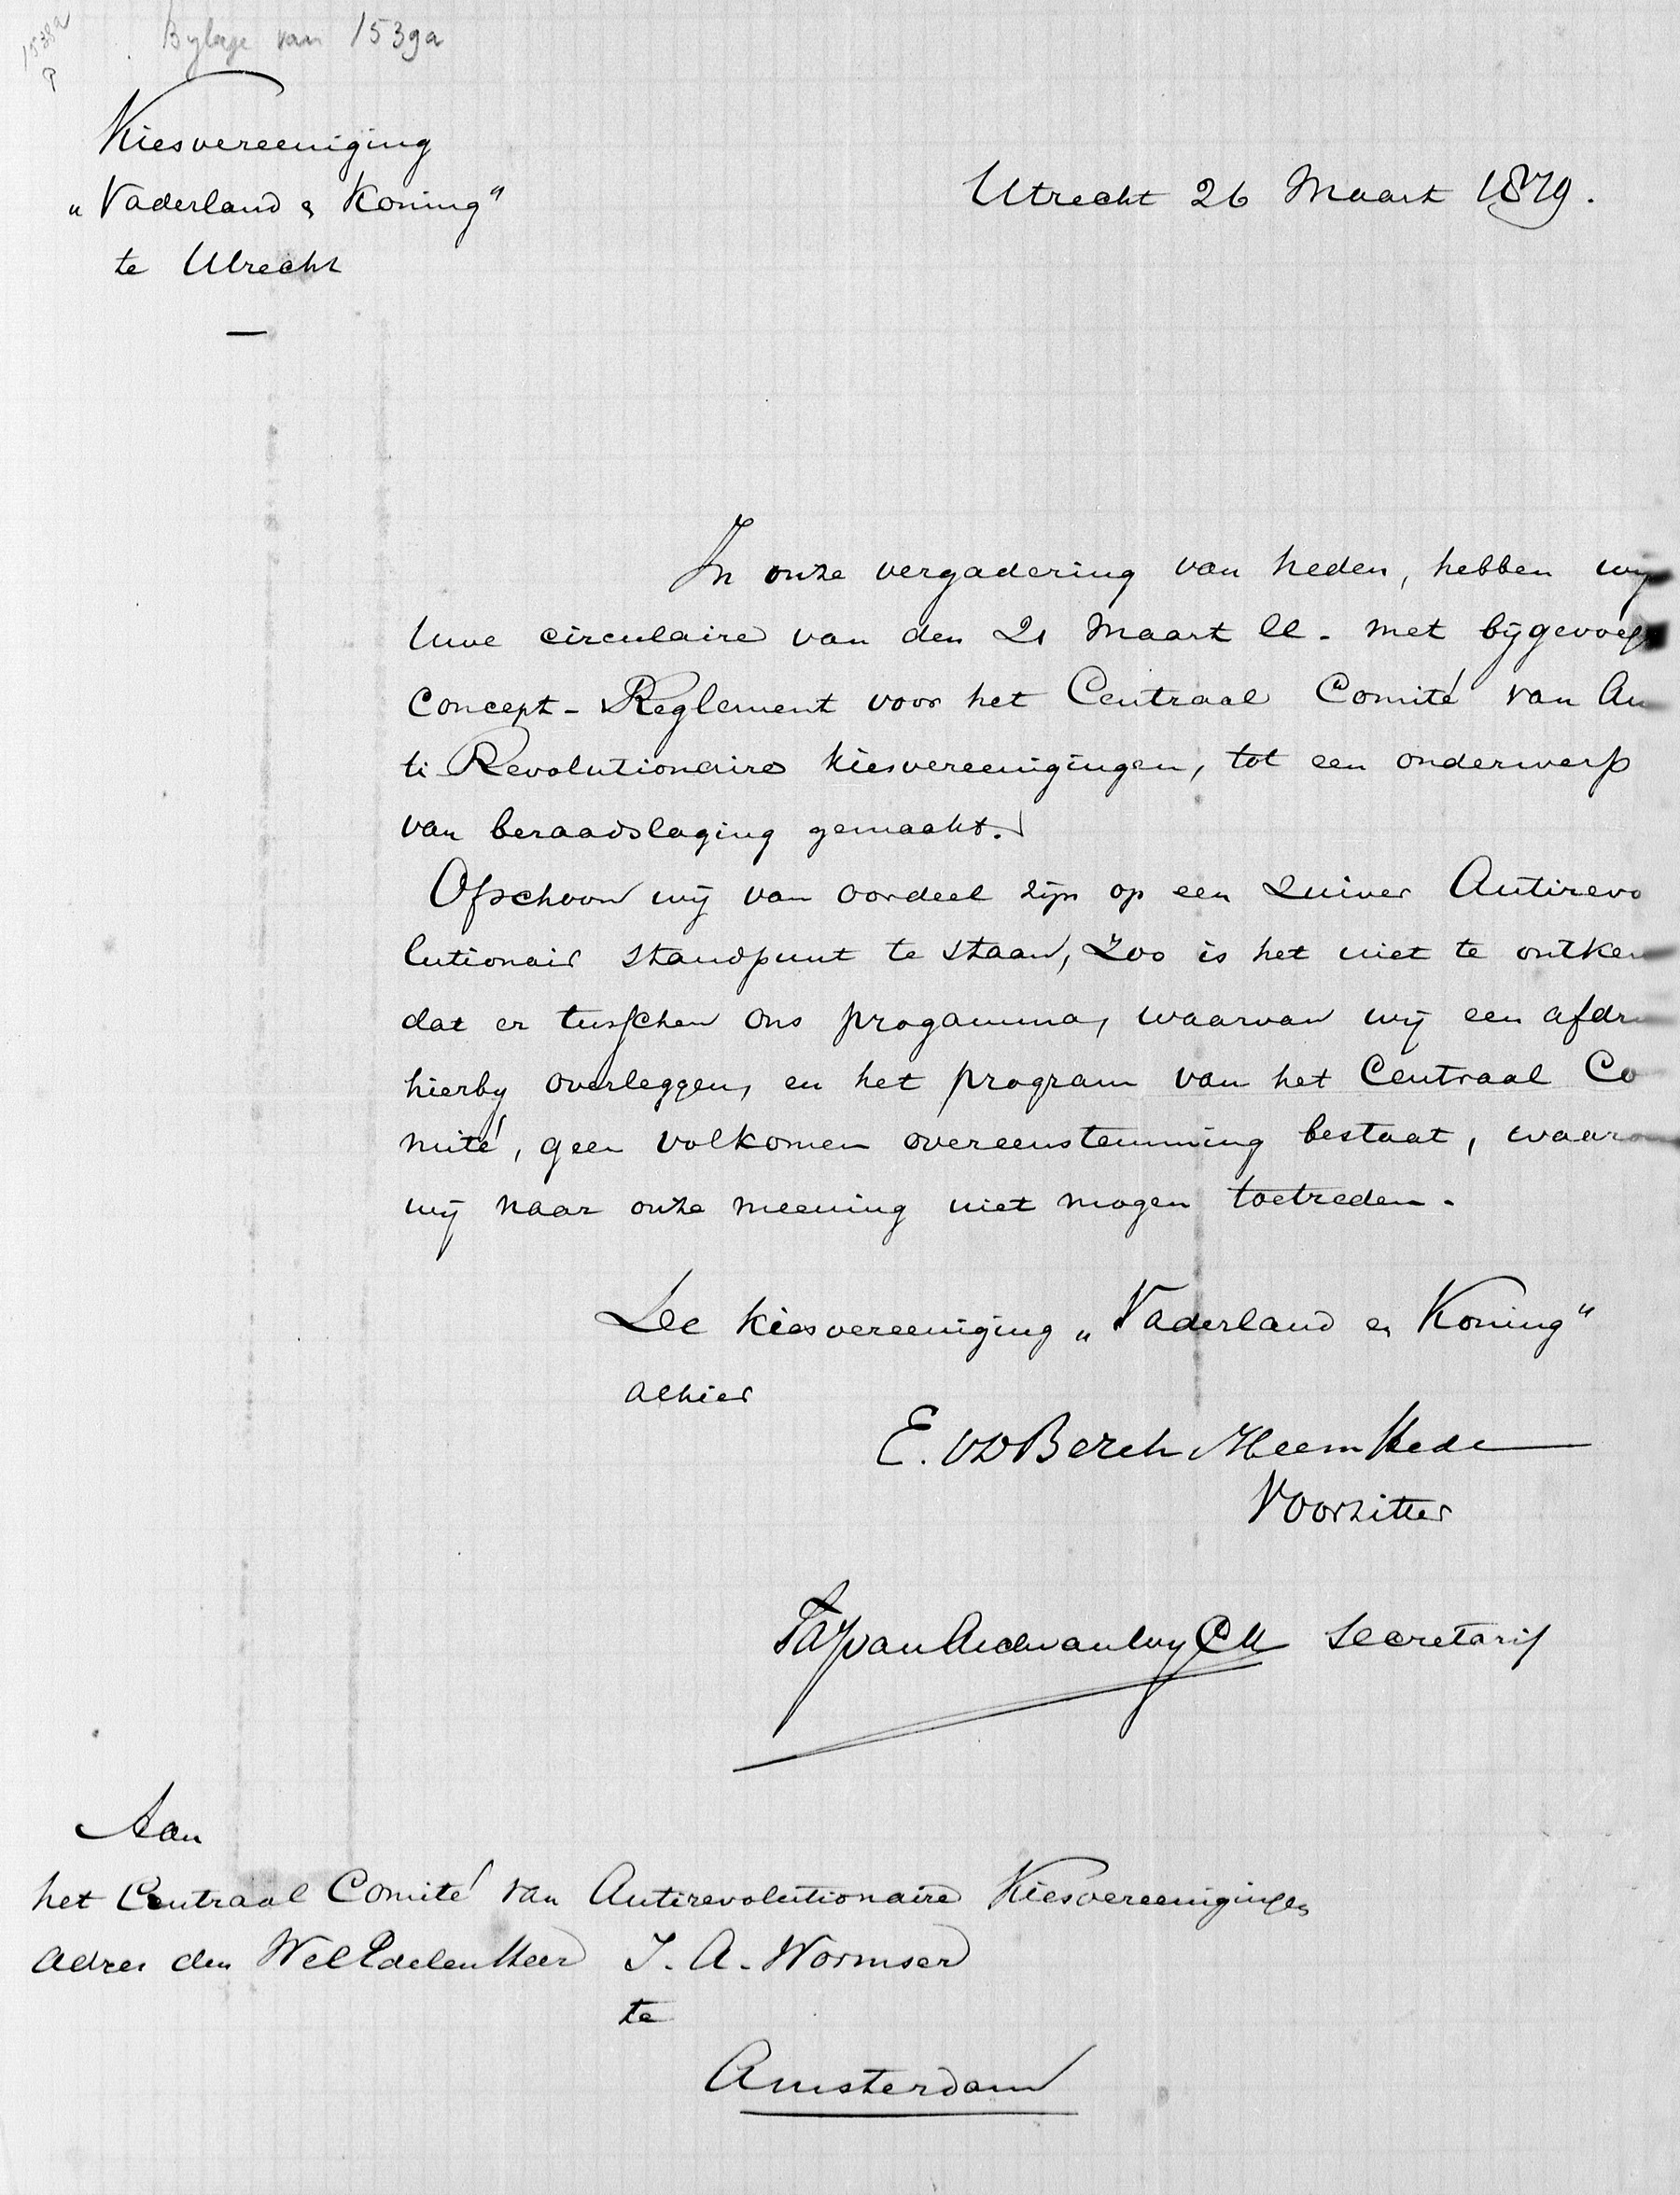 1538a
Bylage van 1539a
Kiesvereeniging
„Vaderland en Koning"
te Utrecht
Utrecht 26 Maart 1879.
In onze vergadering van heden, hebben wij
Uwe circulaire van den 21 Maart ll. met bijgevoegd
Concept-Reglement voor het Centraal Comité van An
ti Revolutionaire Kiesvereenigingen, tot een onderwerp
van beraadslaging gemaakt.
Ofschoon wij van oordeel zijn op een zuiver Antirevo
lutionair standpunt te staan, zoo is het niet te ontken
dat er tusschen ons progamma, waarvan wij een afdru
hierby overleggen, en het program van het Centraal Co
mité, geen volkomen overeenstemming bestaat, waarom
wij naar onze meening niet mogen toetreden.
De Kiesvereeniging „Vaderland en Koning"
alhier
E. VD Berch Heemstede
Voorzitter
Secretaris
Aan
het Centraal Comité van Antirevolutionaire Kiesvereenigingen
adres den WelEdelen Heer J. A. Wormser
te
Amsterdam